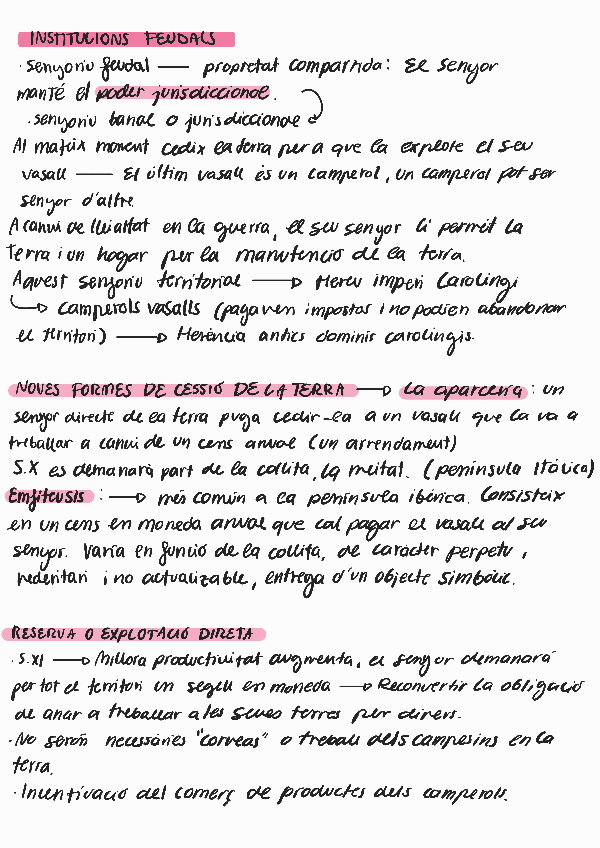 INSTITUCIONS FEUDALS
· Senyoriu feudal — propietat compartida: El senyor
manté el poder jurisdiccional.
· senyoriu banal o jurisdiccional
Al mateix moment cedix la terra per a que la explote el seu
vasall — El últim vasall és un camperol, un camperol pot ser
senyor d'altre
A canvi de lleialtat en la guerra, el seu senyor li permet la
Terra i un hogar per la manutenció de la terra.
Aquest senyoriu territorial → Hereu imperi Carolingi
→ Camperols vasalls (pagaven impostos i no podien abandonar
el territori) → Herència antics dominis carolingis.
NOVES FORMES DE CESSIÓ DE LA TERRA → La aparceria: un
senyor directe de la terra puga cedir-la a un vasall que la va a
treballar a canvi de un cens anual (un arrendament)
S.X es demanarà part de la collita, la meitat. (península Itàlica)
Emfiteusis: → més común a la península ibèrica. Consisteix
en un cens en moneda anual que cal pagar el vasall al seu
senyor. Varia en funció de la collita, de caràcter perpetu,
hederitari i no actualizable, entrega d'un objecte simbòlic.
RESERVA O EXPLOTACIÓ DIRETA
· S.XI → Millora productivitat augmenta, el senyor demanarà
per tot el territori un segell en moneda → Reconvertir la obligació
de anar a treballar a les seues terres per diners.
· No seràn necessàries "corveas" o treball dels campesins en la
terra.
· Incentivació del comerç de productes dels camperols.